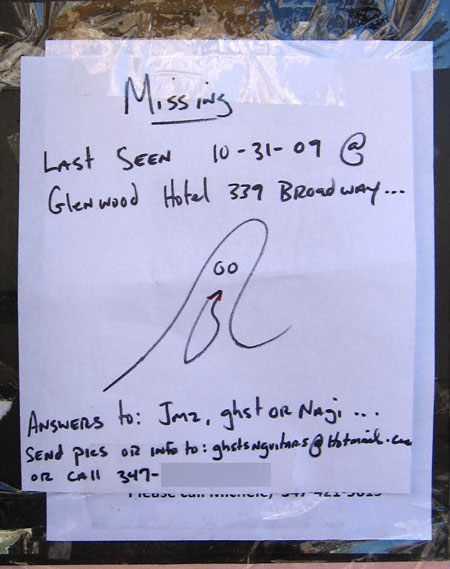 Missing
LAST SEEN 10-31-09 @
Glenwood Hotel 339 Broadway...
Answers to: Jmz, ghst or Nagi ...
Send pics or info to: ghstsnguitars@hotmail.com
or call 347-
Please call Michele,